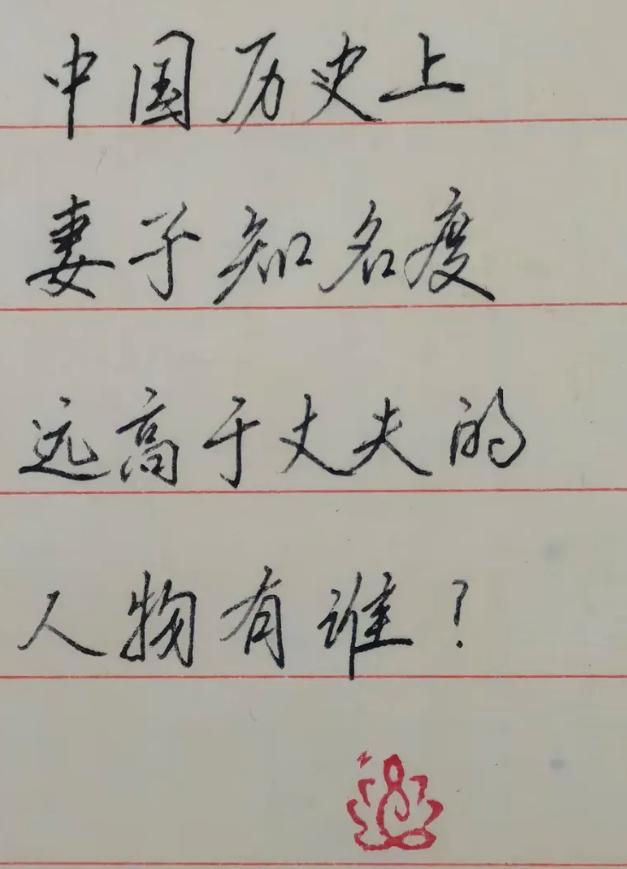 中国历史上
妻子知名度
远高于丈夫的
人物有谁？